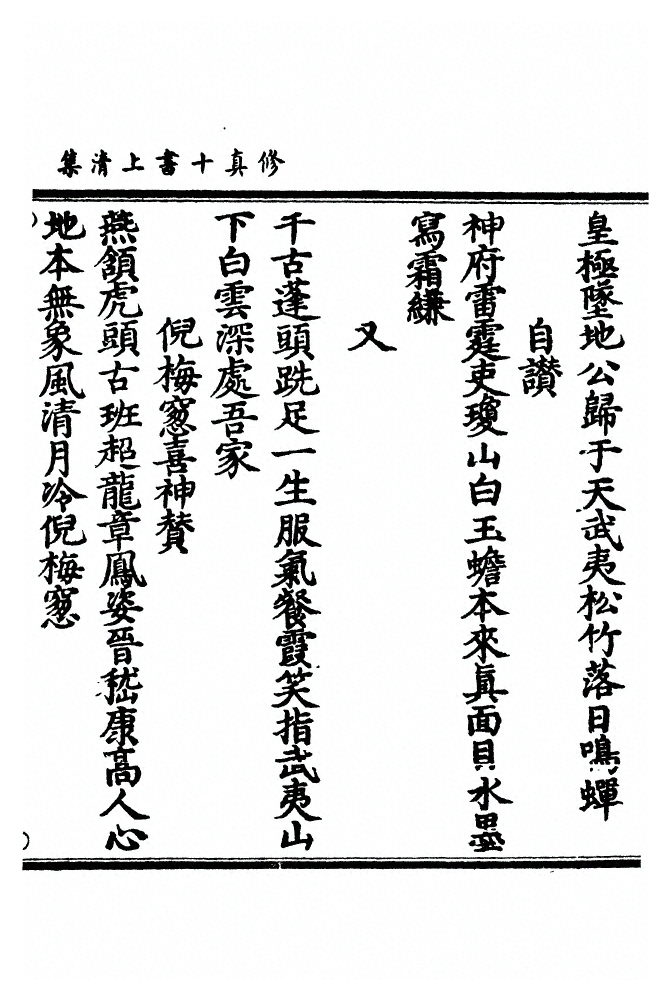 修真十書上清集
皇極墜地公歸于天武夷松竹落日鳴蟬
自讃
神府雷霆吏瓊山白玉蟾本來眞面目水墨
寫霜縑
又
千古蓬頭跣足一生服氣餐霞笑指武夷山
下白雲深處吾家
倪梅窓喜神賛
燕頷虎頭古班超龍章鳳姿晉嵇康高人心
地本無象風清月冷倪梅窓